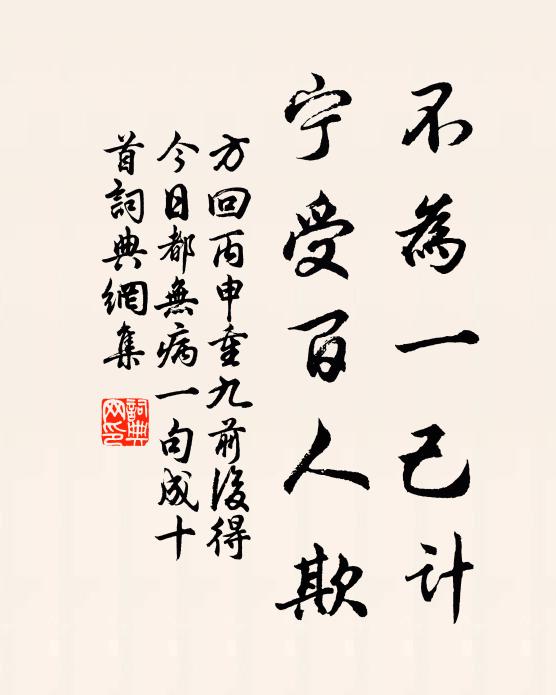 不為一己计
宁受百人欺
方回丙申重九前後得
今日都無病一句成十
首詞典網集
詞典網印